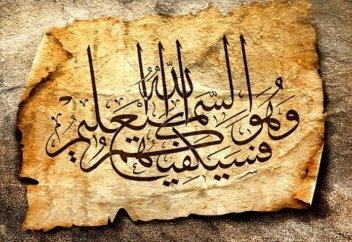 فَسَيَكْفِيكَهُمُ اللهُ
وَهُوَ السَّمِيعُ العَلِيمُ